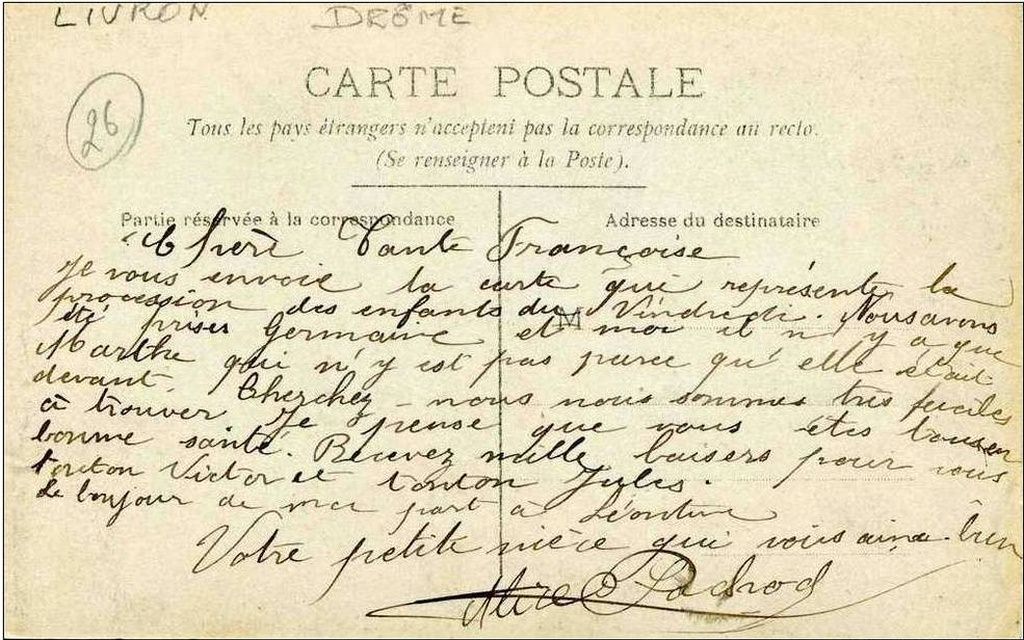 LIVRON DRÔME
26
CARTE POSTALE
Tous les pays étrangers n'acceptent pas la correspondance au recto.
(Se renseigner à la Poste).
Partie réservée à la correspondance
Adresse du destinataire
M
Chère Tante Françoise
Je vous envoie la carte qui représente la
procession des enfants du Vendredi. Nous avons
été prises Germaine et moi il n'y a que
Marthe qui n'y est pas parce qu'elle était
devant. Cherchez-nous nous sommes très faciles
à trouver. Je pense que vous êtes tous en
bonne santé. Recevez mille baisers pour vous
tonton Victor et tonton Jules.
Le bonjour de ma part à Léontine
Votre petite nièce qui vous aime bien